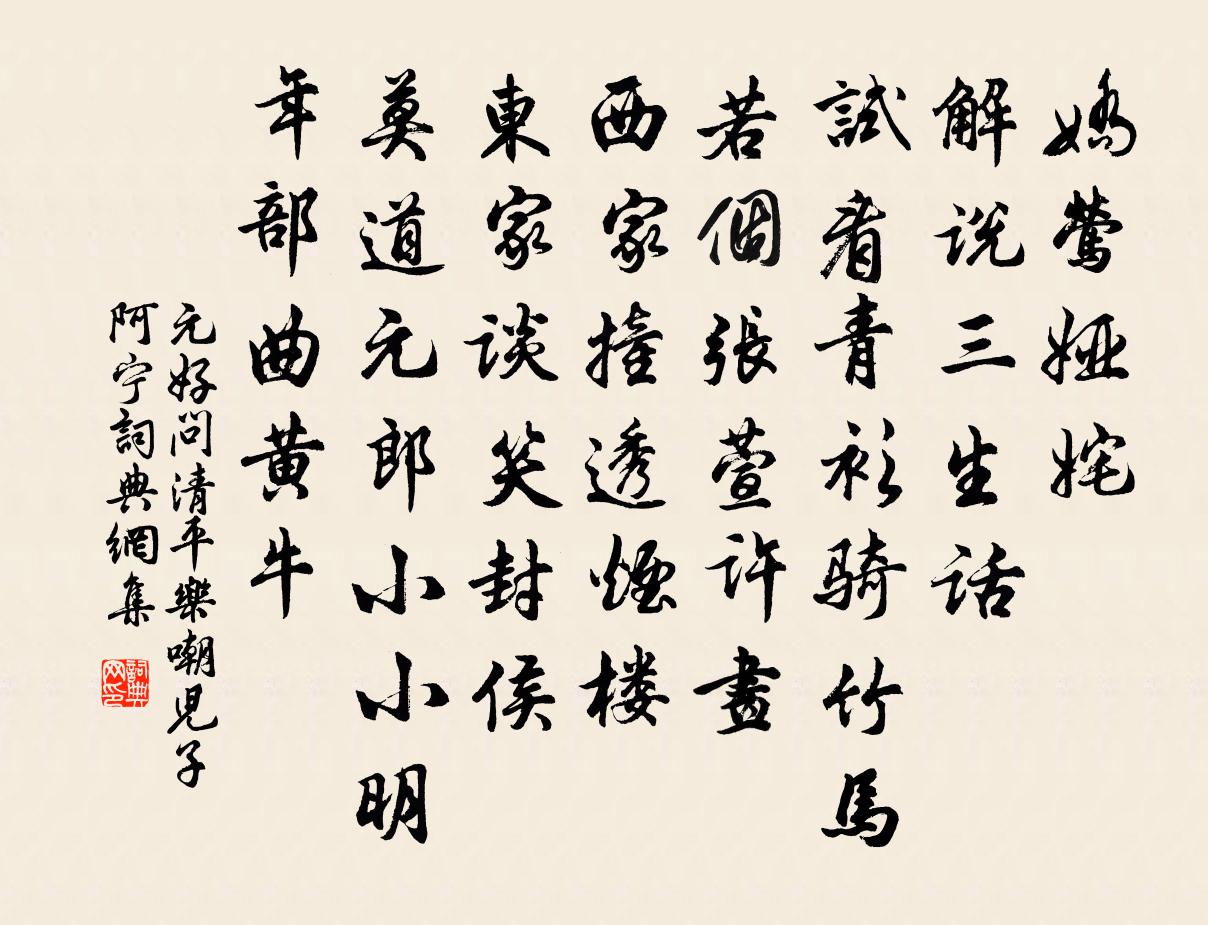 嬌鶯婭姹
解说三生话
試看青衫骑竹馬
若個張萱許畫
西家撞透煙楼
東家談笑封侯
莫道元郎小小明
年部曲黄牛
元好問清平樂嘲児子
阿宁詞典網集
詞典网印